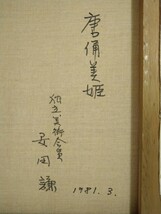 唐俑美姫
独立美術会員
安田謙
1981. 3.